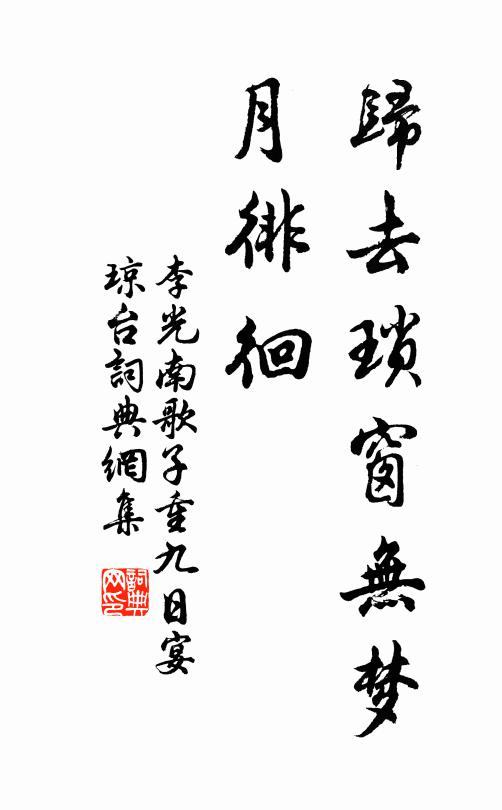 歸去瑣窗無梦
月徘徊
李光南歌子重九日宴
琼台詞典網集
詞典網印